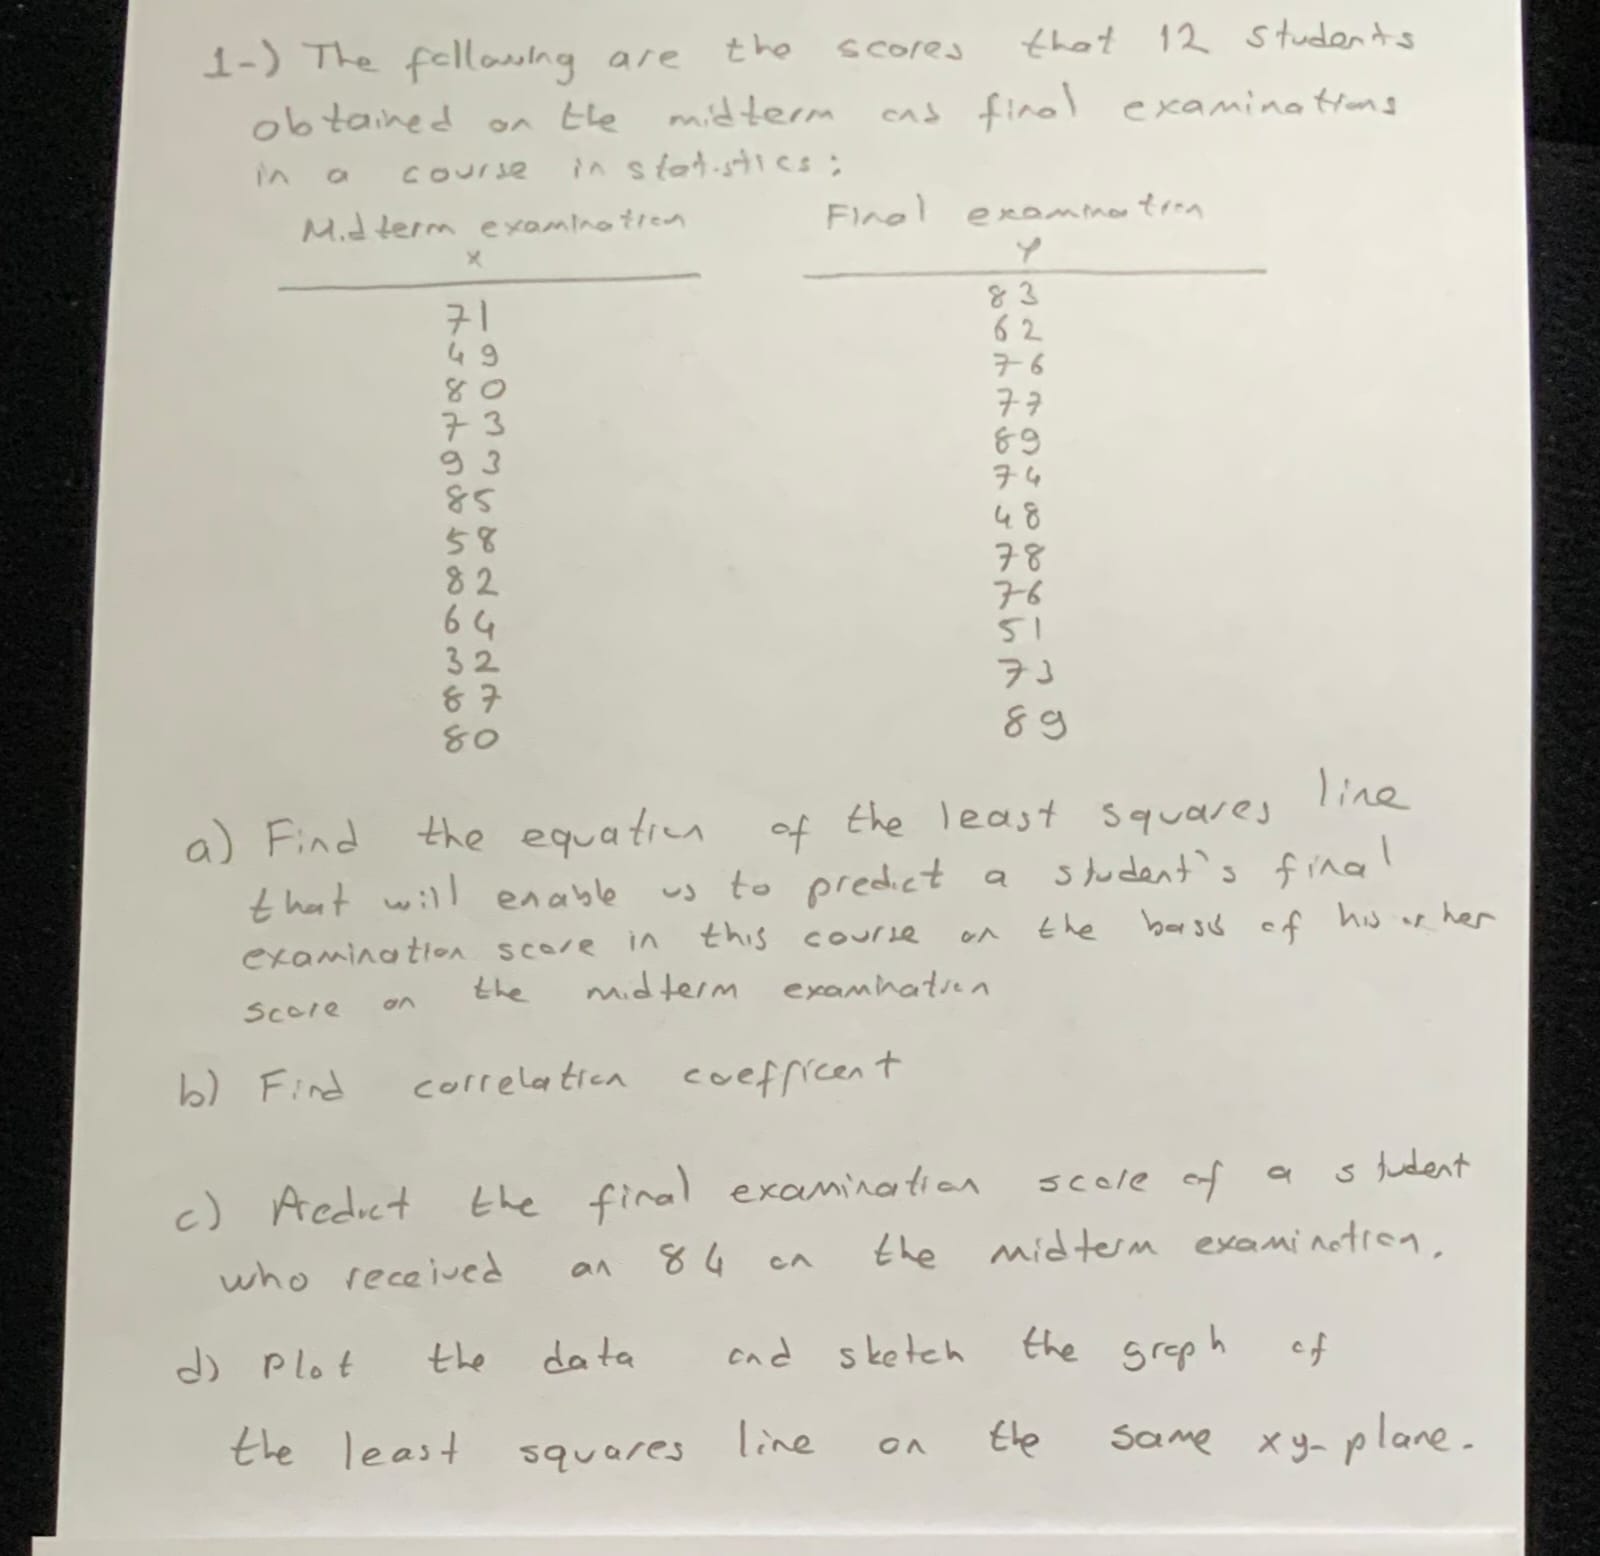 1-) The following are the scores that 12 students
obtained on the midterm and final examinations
in a course in statistics:
Midterm examination Final examination
x y
71 83
49 62
80 76
73 77
93 89
85 74
58 48
82 78
64 76
32 51
87 73
80 89
a) Find the equation of the least squares line
that will enable us to predict a student's final
examination score in this course on the basis of his or her
score on the midterm examination
b) Find correlation coefficent
c) Predict the final examination score of a student
who received an 84 on the midterm examination.
d) Plot the data and sketch the graph of
the least squares line on the same xy-plane.